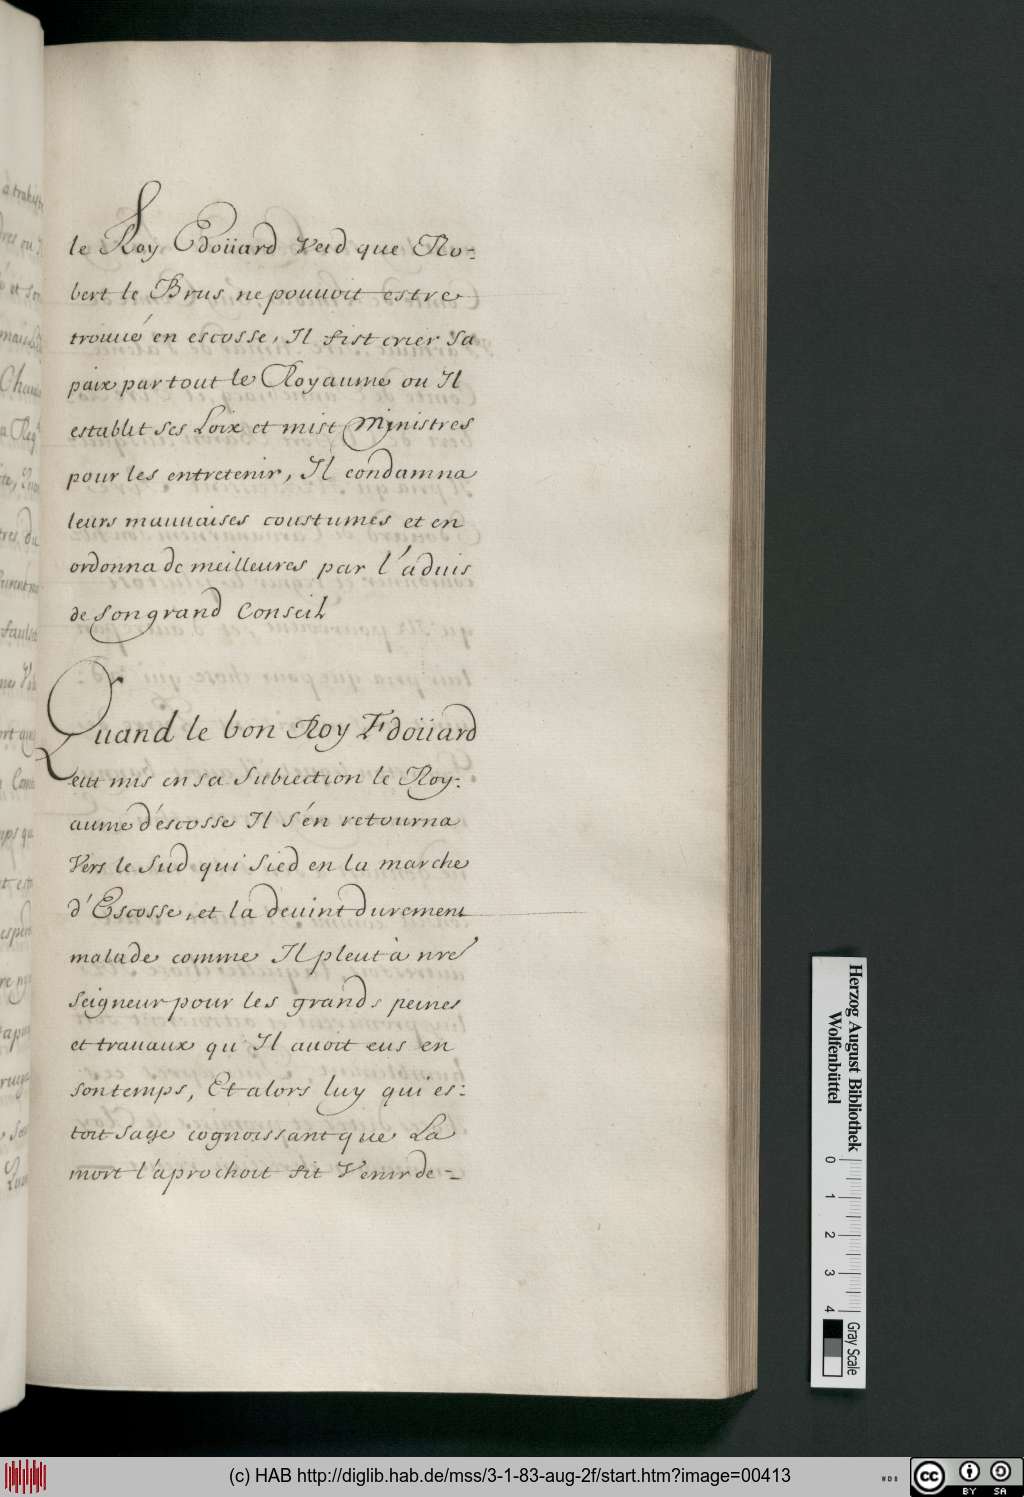 le Roy Edoüard Veid que Ro-
bert le Brus ne pouuoit estre
trouué en escosse, Il fist crier sa
paix par tout le Royaume ou Il
establit ses Loix et mist Ministres
pour les entretenir, Il condamna
leurs mauuaises coustumes et en
ordonna de meilleures par l'aduis
de son grand Conseil
Quand le bon Roy Edoüard
eut mis en sa Subiection le Roy:
aume d'éscosse Il s'én retourna
Vers le Sud qui Sied en la marche
d'Escosse, et la deuint durement
malade comme Il pleut à nre
Seigneur pour les grands peines
et trauaux qu'Il auoit eus en
son temps, Et alors luy qui es:
toit sage cognoissant que La
mort l'aprochoit fit Venir de-
Herzog August Bibliothek
Wolfenbüttel
0 1 2 3 4
Gray Scale
(c) HAB http://diglib.hab.de/mss/3-1-83-aug-2f/start.htm?image=00413
WDB
cc BY SA